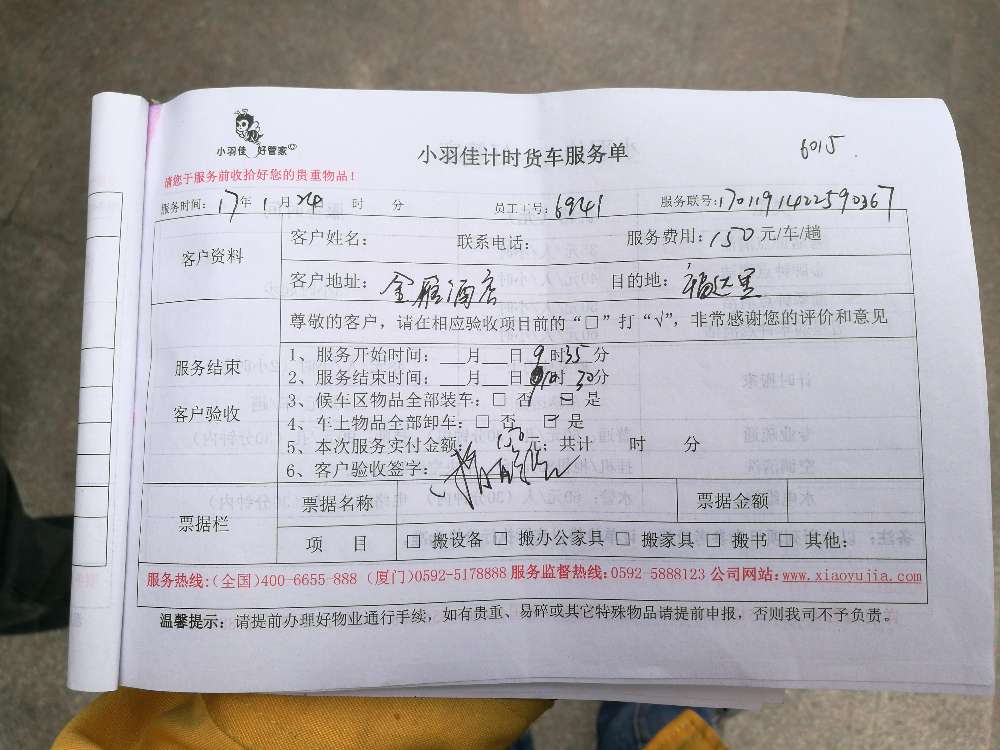 小羽佳 好管家
小羽佳计时货车服务单
6015
请您于服务前收拾好您的贵重物品！
服务时间：17年1月24 时 分 员工工号：6941 服务联号：1701191422590367
客户资料
客户姓名： 联系电话： 服务费用：150元/车/趟
客户地址：金雁酒店 目的地：福达里
尊敬的客户，请在相应验收项目前的“□”打“√”，非常感谢您的评价和意见
服务结束
客户验收
1、服务开始时间：___月___日9时35分
2、服务结束时间：___月___日10时30分
3、候车区物品全部装车：□ 否 □ 是
4、车上物品全部卸车：□ 否 ☑ 是
5、本次服务实付金额：150元；共计 时 分
6、客户验收签字：
票据栏
票据名称 票据金额
项 目 □ 搬设备 □ 搬办公家具 □ 搬家具 □ 搬书 □ 其他：
服务热线：（全国）400-6655-888（厦门）0592-5178888 服务监督热线：0592-5888123 公司网站：www.xiaoyujia.com
温馨提示：请提前办理好物业通行手续，如有贵重、易碎或其它特殊物品请提前申报，否则我司不予负责。